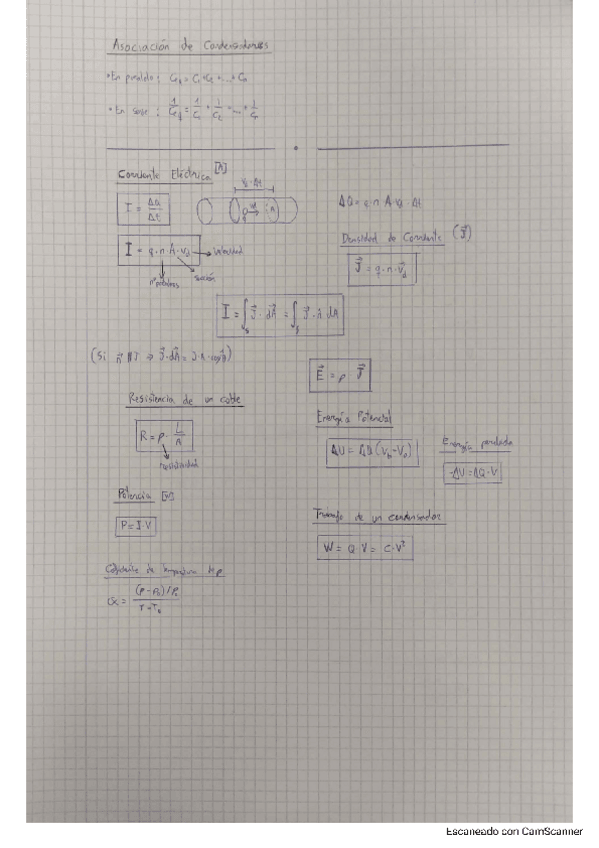 Asociación de Condensadores
• En paralelo: Ceq = C₁ + C₂ + ... + Cn
• En serie: 1/Ceq = 1/C₁ + 1/C₂ + ... + 1/Cn
Corriente Eléctrica [A]
I = ΔQ/Δt
Vd · Δt
ΔQ = q · n · A · Vd · Δt
I = q · n · A · vd → velocidad
sección
nº portadores
Densidad de Corriente (J⃗)
J⃗ = q · n · v⃗d
I = ∫s J⃗ · dA⃗ = ∫s J⃗ · n̂ dA
E⃗ = ρ · J⃗
Resistencia de un cable
R = ρ · L/A
resistividad
Energía Potencial
ΔU = ΔQ (Vb - Va)
Energía perdida
-ΔU = ΔQ · V
Potencia [W]
P = I · V
Trabajo de un condensador
W = Q · V = C · V²
Coeficiente de temperatura de ρ
α = (ρ - ρ₀)/ρ₀ / T - T₀
Escaneado con CamScanner